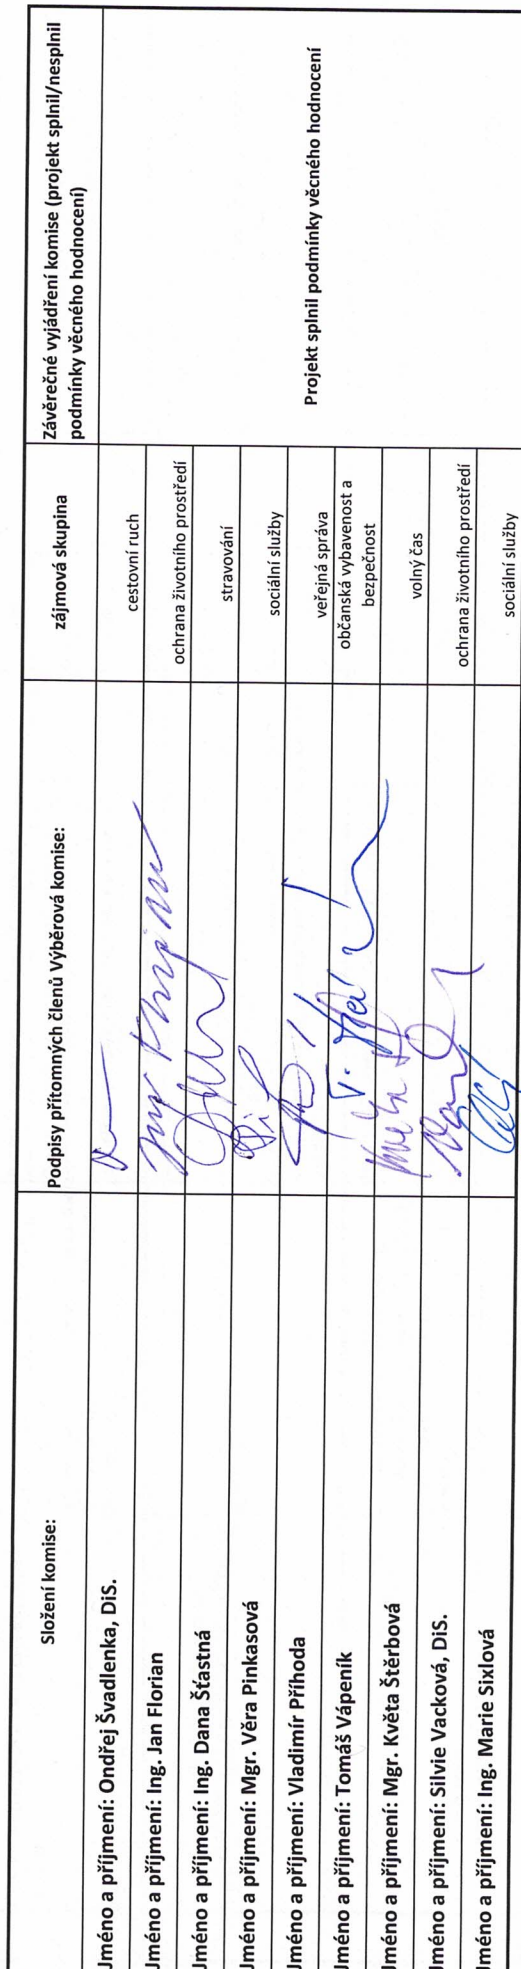 Složení komise:
Podpisy přítomných členů Výběrová komise:
zájmová skupina
Závěrečné vyjádření komise (projekt splnil/nesplnil
podmínky věcného hodnocení)
Jméno a příjmení: Ondřej Švadlenka, DiS.
cestovní ruch
Jméno a příjmení: Ing. Jan Florian
ochrana životního prostředí
Jméno a příjmení: Ing. Dana Šťastná
stravování
Jméno a příjmení: Mgr. Věra Pinkasová
sociální služby
Jméno a příjmení: Vladimír Příhoda
veřejná správa
Projekt splnil podmínky věcného hodnocení
Jméno a příjmení: Tomáš Vápeník
občanská vybavenost a
bezpečnost
Jméno a příjmení: Mgr. Květa Štěrbová
volný čas
Jméno a příjmení: Silvie Vacková, DiS.
ochrana životního prostředí
Jméno a příjmení: Ing. Marie Sixlová
sociální služby